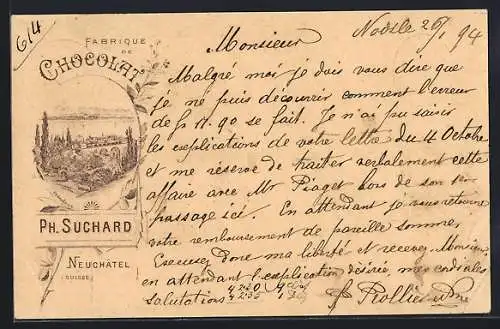 614
FABRIQUE
DE
CHOCOLAT
PH. SUCHARD
NEUCHÂTEL
(SUISSE)
26/1 94
Monsieur
Malgré moi je dois vous dire que
je ne puis découvrir comment l'erreur
de fr 11.90 se fait. Je n'ai pu saisir
les explications de votre lettre du 4 Octobre
et me réserve de traiter verbalement cette
affaire avec Mr Piaget lors de son
passage ici. En attendant je vous retourne
votre remboursement de pareille somme.
Excusez donc ma liberté et recevez, Monsieur,
en attendant l'explication désirée, mes cordiales
salutations